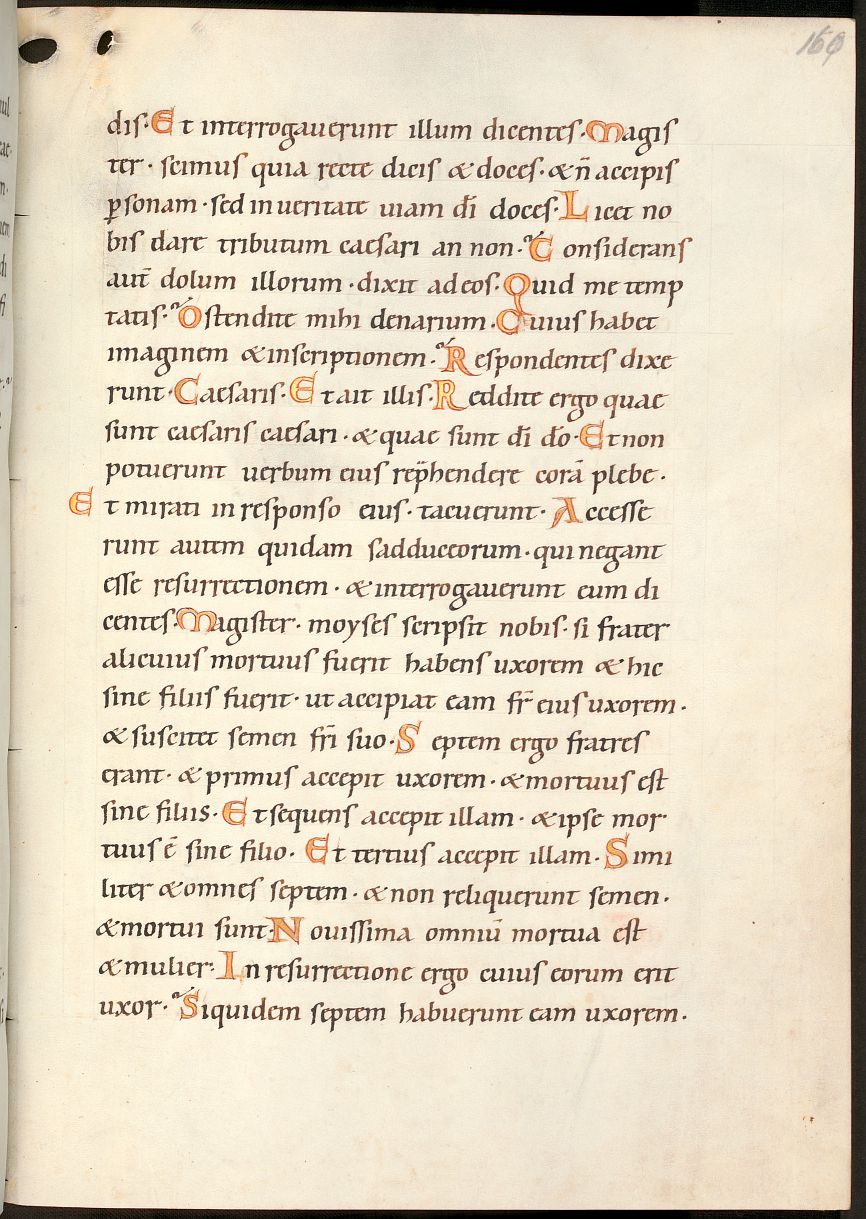 169
dis· Et interrogauerunt illum dicentes· Magis
ter· scimus quia recte dicis & doces· & n̄ accipis
ꝑsonam· sed in ueritate uiam dī doces· Licet no
bis dare tributum caesari an non· Considerans
aut̄ dolum illorum· dixit ad eos· Quid me temp
tatis· Ostendite mihi denarium· Cuius habet
imaginem & inscriptionem· Respondentes dixe
runt· Caesaris· Et ait illis· Reddite ergo quae
sunt caesaris caesari· & quae sunt dī do̅· Et non
potuerunt uerbum eius rep̄hendere corā plebe·
Et mirati in responso eius· tacuerunt· Accesse
runt autem quidam sadduceorum· qui negant
esse resurrectionem· & interrogauerunt eum di
centes· Magister· moyses scripsit nobis· si frater
alicuius mortuus fuerit habens uxorem & hic
sine filiis fuerit· ut accipiat eam fr̄ eius uxorem·
& suscitet semen fr̄i suo· Septem ergo fratres
erant· & primus accepit uxorem· & mortuus est
sine filiis· Et sequens accepit illam· & ipse mor
tuus ē sine filio· Et tertius accepit illam· Simi
liter & omnes septem· & non reliquerunt semen·
& mortui sunt· Nouissima omniū mortua est
& mulier· In resurrectione ergo cuius eorum erit
uxor· Siquidem septem habuerunt eam uxorem·